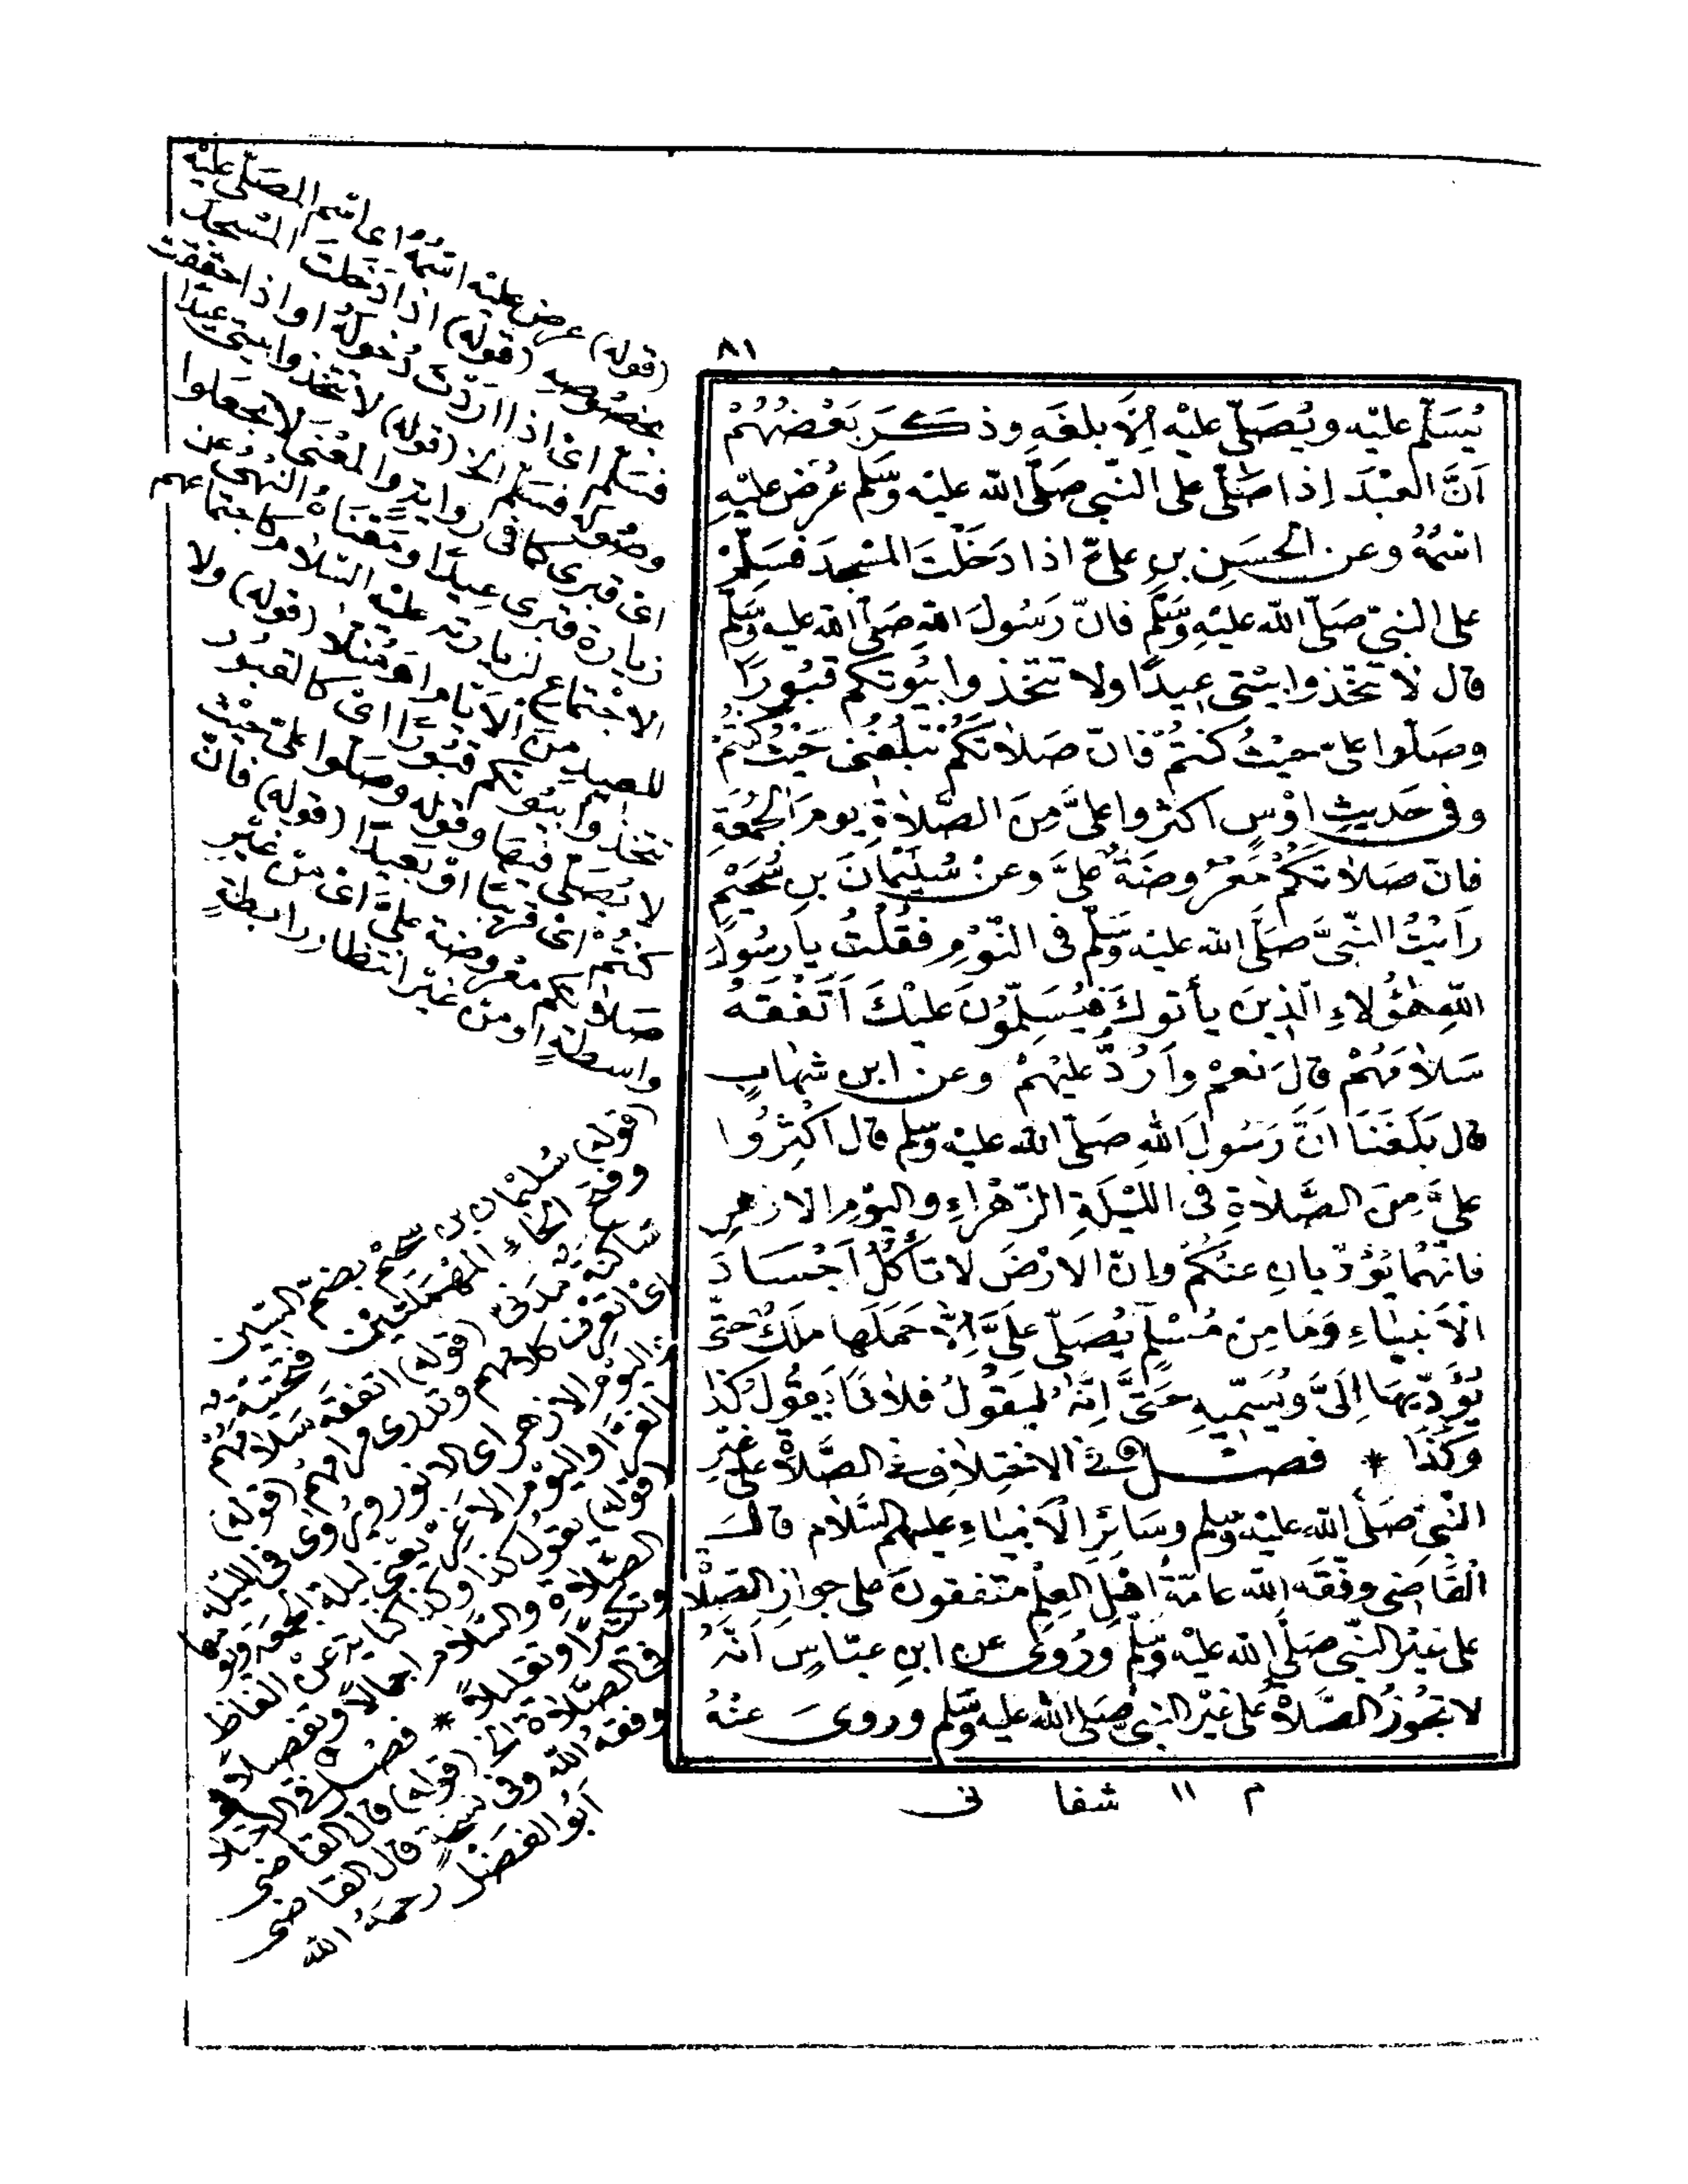 ٨١
يُسَلِّم عليْه ويُصَلّى عليْه اِلاَّ بلغَه وذكَر بَعْضُهُمْ
اَنَّ العَبْدَ اِذا صَلّٰى على النّبى صَلَّى الله عليْه وَسَّلم عُرْضَ عليْهِ
اسْمُهُ وعن الحسَنِ بنِ علىّ اذا دَخَلْتَ المسْجدَ فَسَلِّمْ
على النبىّ صَلّى الله عليْهِ وَسَّلَم فانّ رَسُولَ الله صَلّى الله عليه وسَّلم
قال لا تتّخذوا بيْتى عِيدًا ولا تتّخذوا بيُوتكم قبُورًا
وصَلّوا علىّ حيْثُ كنتُمْ فانّ صَلاتكُمْ تبْلُغُنى حَيْثُ كُنْتُمْ
وفى حَديثِ اوْسٍ اكثروا علىَّ مِنَ الصَّلاةِ يومَ الجُمْعَةِ
فانّ صَلاتكُمْ مَعْرُوضَةٌ علىَّ وعنْ سُليْمانَ بنِ سُحَيْمٍ
رَأَيْتُ النّبىَّ صَلَّى الله عليْه وَسَلّم فى النّوْمِ فقُلْتُ يا رَسُولَ
اللهِ هٰؤُلاءِ الّذينَ يأتونكَ فيُسَلِّمُونَ عليْكَ اَتَفْقَهُ
سَلاَمَهُمْ قالَ نعمْ واَرُدُّ عليْهمْ وعن ابن شهابٍ
قال بَلَغَنَا اَنَّ رَسُولَ اللهِ صَلّى الله عليْه وسّلم قال اَكْثِرُوا
علىَّ مِنَ الصَّلاةِ فى اللّيْلَةِ الزّهْراءِ واليوْمِ الازهرِ
فانّهما يُؤدّيانِ عنْكُمْ وانّ الارْضَ لا تأكُلُ اَجْسَادَ
الْاَنبياءِ وَمَا مِنْ مُسْلمٍ يُصَلّى علَىَّ اِلاَّ حَمَلَها مَلَكٌ حتّى
يُؤَدِّيهَا اِلَىَّ ويُسَمّيهِ حَتَّى اِنَّهُ ليَقُولُ اِنّ فلانًا يَقُولُ كذا
وَكَذَا * فصـل فى الاختِلافِ فى الصَّلاةِ علٰى غيْرِ
النّبىّ صَلّى الله عليْه وسّلم وسَائِرِ الْاَنبيَاءِ عليهمُ السَّلام قالَ
القاضى وفّقَه الله عامّةُ اهْلِ العِلْمِ متّفقونَ على جوازِ الصّلاة
على غيْرِ النّبى صَلَّى الله عليْه وَسّلم ورُوِىَ عن ابنِ عبّاسٍ اَنّهُ
لا تجُوزُ الصَّلاةُ على غيْرِ النبى صَلى الله عليه وسَّلم وروىَ عنْهُ
م ١١ شفا نى
(قوله) عرض عليْه اسْمُهُ اى اسْم المصَلّى عليْه
بخصُوصِه (قوله) اذا دَخلتَ المسْجدَ
فسَلّم اى اذا ارَدْتَ دُخولَهُ او اذا حقّقت
وصُولَكَ فسَلّم الخ (قوله) لا تتّخذوا بيتى عيدًا
اى قبرى كما فى روايةٍ والمعْنى لا تجعَلوا
زيارة قبرى عيدًا ومَعْناهُ النهْىُ عن
الاجْتماعِ لزيارتِه عليْه السّلام كاجتماعهم
للعيد من (قوله) ولا
تتخذوا بيُوتكم قبُورًا اى كالقبُور
لا يُصَلّى فيها وقوْله وصَلوا علىّ حيْث
كنتُمْ اى قريبًا اوْ بعيدًا (قوله) فانّ
صَلاتكم معْروضة علىَّ اى منْ غيْرِ
واسطةٍ او منْ غيْر انتظار رابطةٍ
(قوله) سُليْمان بن سحيْم بضمّ السّين
وفتح الحاءِ المهْمَلتيْن فتحْتيّة
ساكنة مدَنىّ (قوله) اتفقه سَلامهُمْ
اى تعْرف كلامهم وتدرى مرامهُم (قوله)
واليوْم الازهر اى الانور ويرْوى فى الليْلة
الغرّاءِ واليوْم الاغرّ يعْنى ليلة الجمعَة ويومها
(قوله) يقول كذا وكذا كناية عنْ الفاظ
الصّلاةِ والسّلام اجمالاً وتفصيلاً
وتكثيرًا وتقليلاً * فصْل فى الاختلاف
فى الصّلاة الخ (قوله) قال القاضى
وفقهُ الله وفى نسخةٍ قال القاضى
اَبُو الفضْل رحمَهُ الله